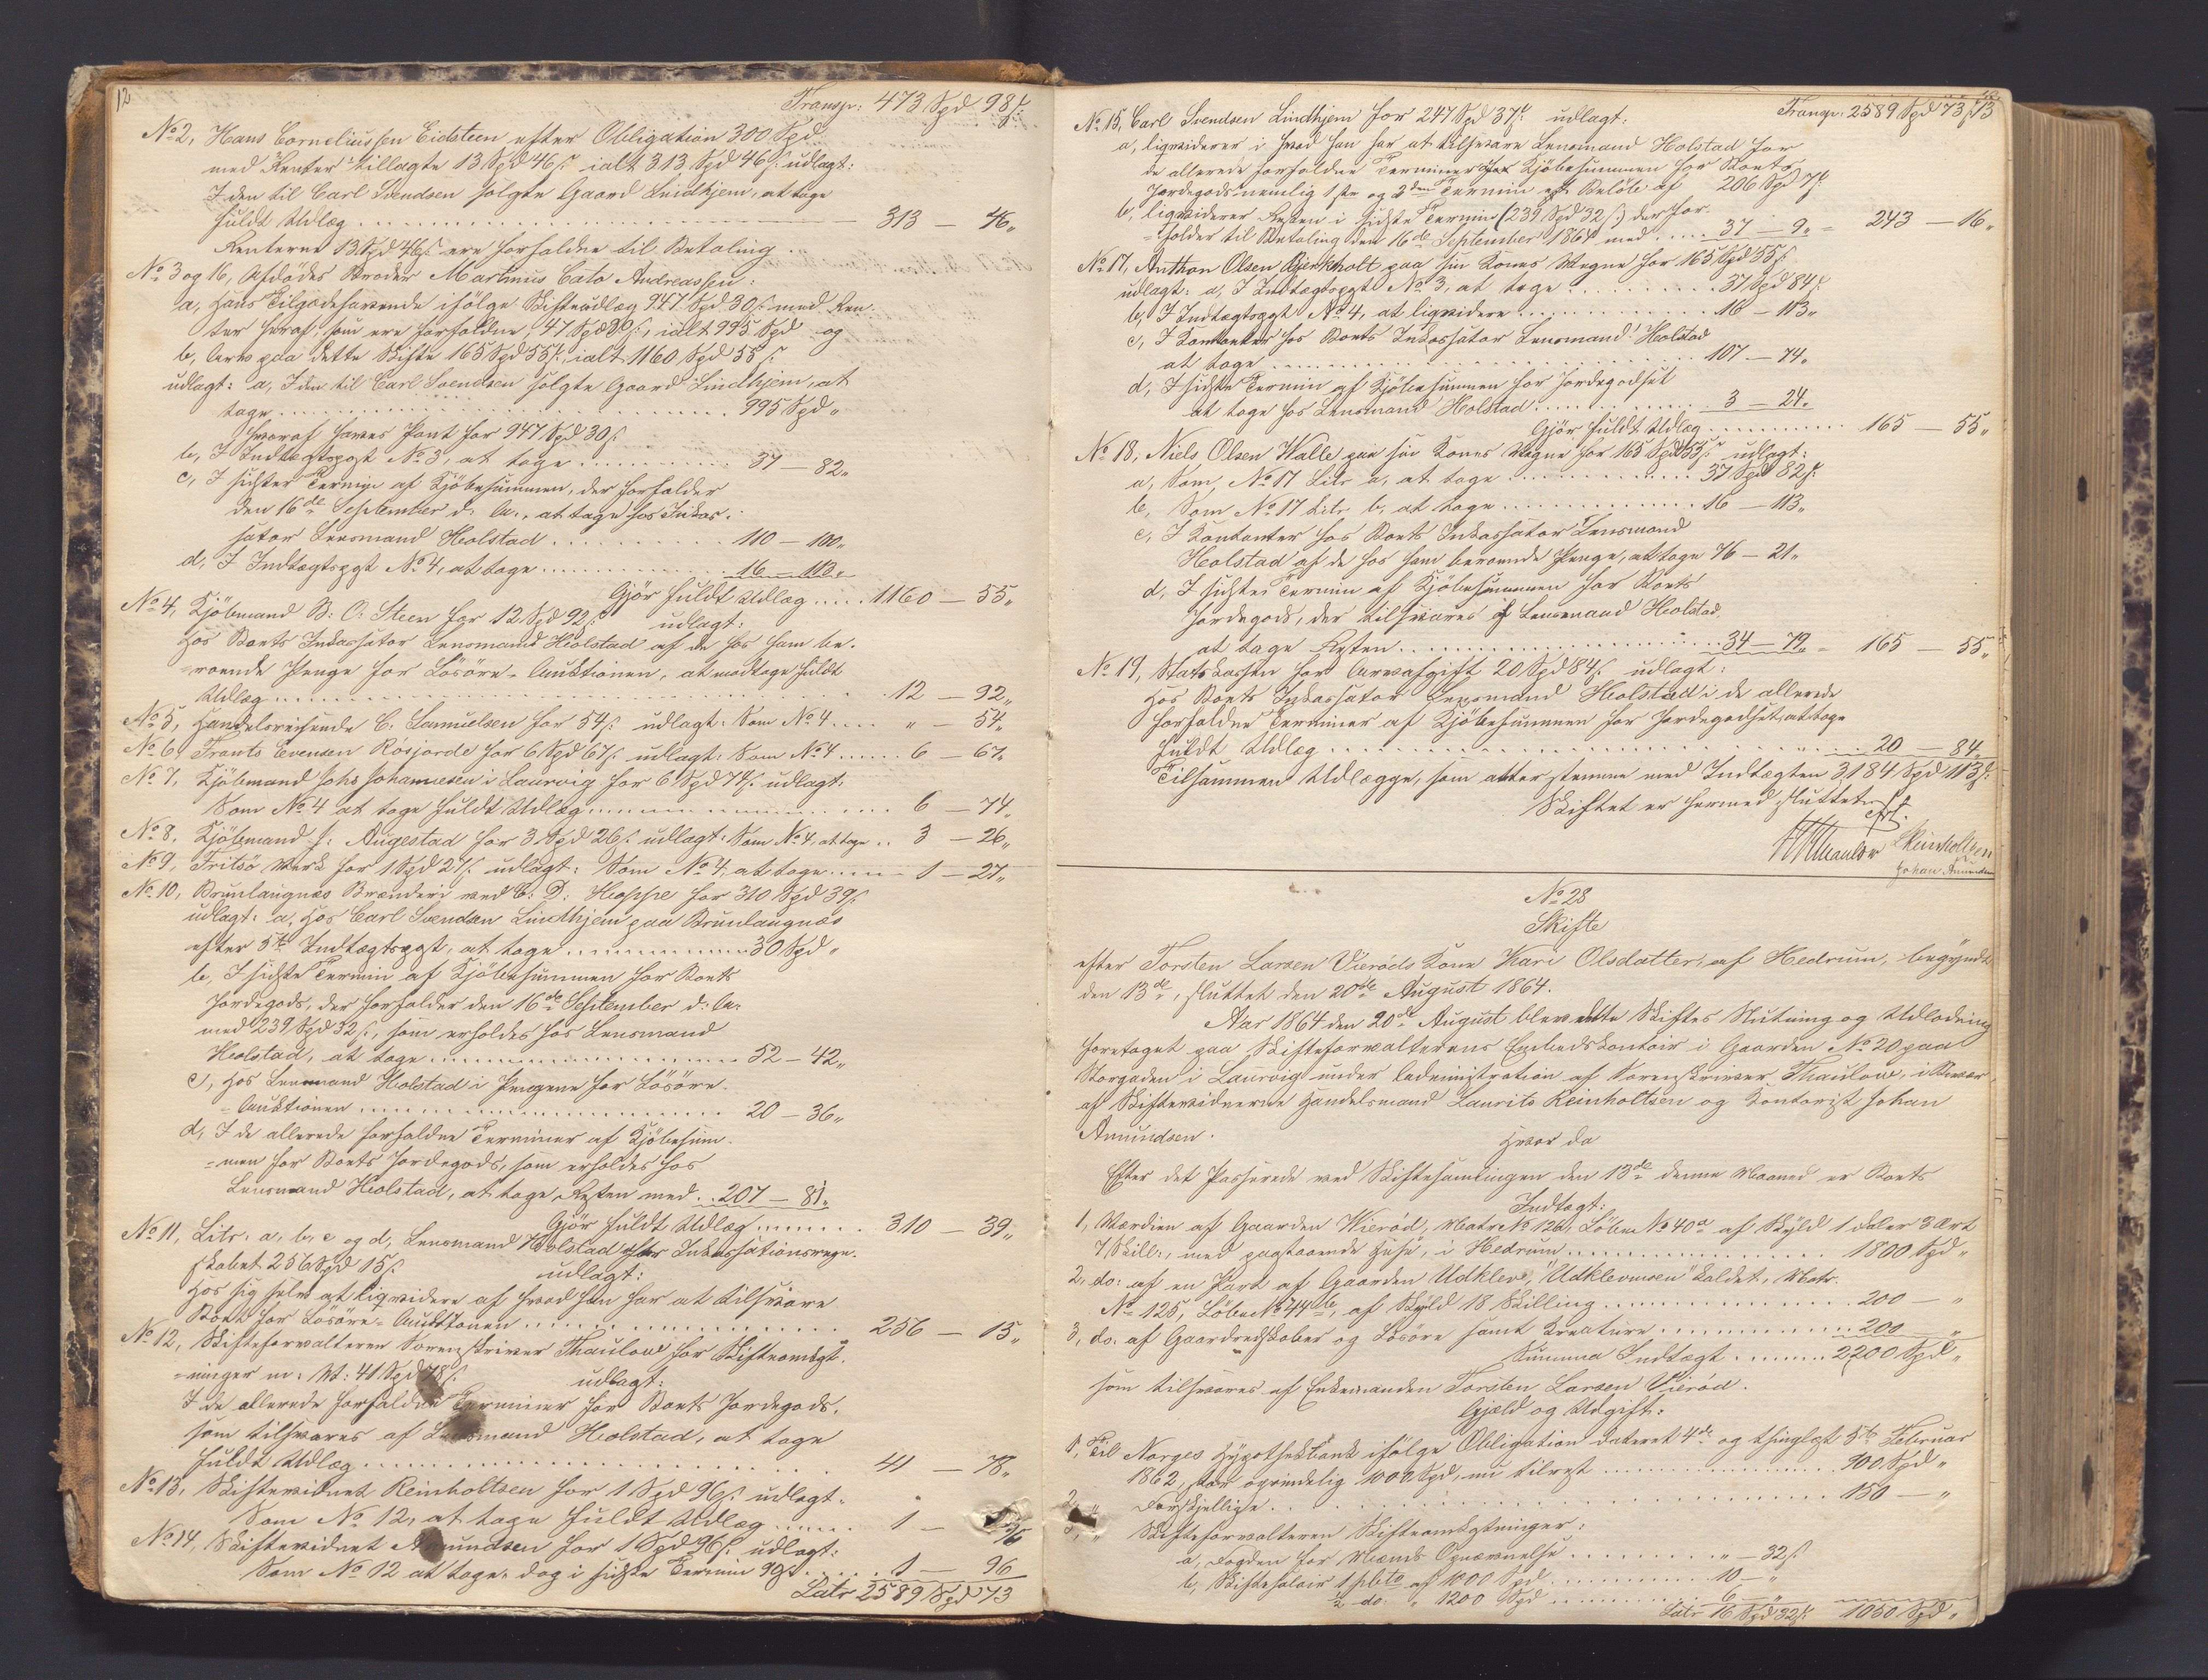 12
Transp: 473 Spd 98 ſ.
No 2, Hans Corneliussen Eidsteen efter Obligation 300 Spd
med Renter tillagte 13 Spd 46 ſ ialt 313 Spd 46 ſ. udlagt:
I den til Carl Svendsen solgte Gaard Lindhjem, at tage
fuldt Udlæg 313 — 46 „
Renterne 13 Spd 46 ſ ere forfaldne til Betaling.
No 3 og 16, Afdødes Broder Martinus Cato Andreassen:
a, Hans Tilgodehavende ifølge Skifteudlæg 947 Spd 30 ſ med Ren-
ter heraf som ere forfaldne, 47 Spd 90 ſ, ialt 995 Spd og
b, Arv paa dette Skifte 165 Spd 55 ſ, ialt 1160 Spd 55 ſ.
udlagt: a, I den til Carl Svendsen solgte Gaard Lindhjem, at
tage 995 Spd „
hvoraf haves Pant for 947 Spd 30 ſ.
b, I Indtægtspgt No 3, at tage 37 — 82 „
c, I sidste Termin af Kjöbesummen, der forfalder
den 16de September d. A., at tage hos Inkas-
sator Lensmand Holstad 110 — 100 „
d, I Indtægtspgt No 4, at tage 16 — 113 „
Gjør fuldt Udlæg 1160 — 55 „
No 4, Kjöbmand B: O: Steen for 12 Spd 92 ſ udlagt:
Hos Boets Inkassator Lensmand Holstad af de hos ham be-
roende Penge for Lösöre-Auktionen, at modtage fuldt
Udlæg 12 — 92 „
No 5, Handelsreisende C. Samuelsen for 54 ſ. udlagt: Som No 4 „ — 54 „
No 6, Frants Evensen Rösjorde for 6 Spd 67 ſ. udlagt: Som No 4 6 — 67 „
No 7, Kjöbmand Johs Johannesen i Laurvig for 6 Spd 74 ſ. udlagt:
Som No 4 at tage fuldt Udlæg 6 — 74 „
No 8, Kjöbmand J: Augestad for 3 Spd 26 ſ. udlagt: Som No 4, at tage 3 — 26 „
No 9, Fritsö Werk for 1 Spd 27 ſ. udlagt: Som No 4, at tage 1 — 27 „
No 10, Brunlaugnæs Brænderi ved C: D: Hoppe for 310 Spd 39 ſ.
udlagt: a, Hos Carl Svendsen Lindhjem paa Brunlaugnæs
efter 5te Indtægtspgt, at tage 30 Spd „
b, I sidste Termin af Kjöbesummen for Boets
Jordegods, der forfalder den 16de September d: A:
med 239 Spd 32 ſ, som erholdes hos Lensmand
Holstad, at tage 52 — 42 „
c, Hos Lensmand Holstad i Pengene for Lösöre-
Auktionen 20 — 36 „
d, I de allerede forfaldne Terminer af Kjöbesum-
men for Boets Jordegods, som erholdes hos
Lensmand Holstad, at tage Resten med 207 — 81 „
Gjør fuldt Udlæg 310 — 39 „
No 11, Litr. a, b, c og d, Lensmand Holstad for Inkassationsregn-
skabet 256 Spd 15 ſ. udlagt:
Hos sig selv at liqvidere af hvad han har at tilsvare
Boet for Lösöre-Auktionen 256 — 15 „
No 12, Skifteforvalteren Sorenskriver Thaulow for Skifteomkgt-
ninger m: V: 41 Spd 78 ſ. udlagt:
I de allerede forfaldne Terminer for Boets Jordegods,
som tilsvares af Lensmand Holstad, at tage
fuldt Udlæg 41 — 78 „
No 13, Skiftevidnet Reinholtsen for 1 Spd 96 ſ. udlagt:
Som No 12, at tage fuldt Udlæg 1 — 96
No 14, Skiftevidnet Amundsen for 1 Spd 96 ſ. udlagt:
Som No 12 at tage, dog i sidste Termin 1 — 96
Latr 2589 Spd 73
13
Transp: 2589 Spd 73 ſ
No 15, Carl Svendsen Lindhjem for 247 Spd 37 ſ. udlagt:
a, liqviderer i hvad han har at tilsvare Lensmand Holstad for
de allerede forfaldne Terminer af Kjöbesummen for Boets
Jordegods nemlig 1ste og 2den Termin Beløb af 206 Spd 7 ſ
b, liqviderer Resten i sidste Termin (239 Spd 32 ſ.) der for-
falder til Betaling den 16de September 1864 med 37 — 9 „ 243 — 16 „
No 17, Anthon Olsen Bjerkholt paa sin Kones Vegne for 165 Spd 55 ſ.
udlagt: a, I Indtægtspgt No 3, at tage 37 Spd 84 ſ.
b, I Indtægtspgt No 4, at liqvidere 16 — 113 „
c, I Kontanter hos Boets Inkassator Lensmand Holstad
at tage 107 — 74 „
d, I sidste Termin af Kjöbesummen for Jordegodset
at tage hos Lensmand Holstad 3 — 24 „
Gjør fuldt Udlæg 165 — 55 „
No 18, Niels Olsen Walle paa sin Kones Vegne for 165 Spd 55 ſ. udlagt:
a, Som No 17 Litr a, at tage 37 Spd 82 ſ.
b, Som No 17 Litr b, at tage 16 — 113 „
c, I Kontanter hos Boets Inkassator Lensmand
Holstad af de hos ham beroende Penge, at tage 76 — 21 „
d, I sidste Termin af Kjöbesummen for Boets
Jordegods, der tilsvares af Lensmand Holstad
at tage Resten 34 — 79 „ 165 — 55 „
No 19, Statskassen for Arveafgift 20 Spd 84 ſ. udlagt:
Hos Boets Inkassator Lensmand Holstad i de allerede
forfaldne Terminer af Kjöbesummen for Jordegodset, at tage
fuldt Udlæg 20 — 84
Tilsammen Udlægge, som atter stemme med Indtægten 3184 Spd 113 ſ.
Skiftet er hermed sluttet.
Thaulow LReinholtsen
Johan Amundsen
No 28
Skifte
efter Torsten Larsen Vieröds Kone Kari Olsdatter, af Hedrum, begyndt
den 13de, sluttet den 20de August 1864.
Aar 1864 den 20de August blev dette Skiftes Slutning og Udlodning
foretaget paa Skifteforvalterens Embedskontoir i Gaarden No 20 paa
Storgaden i Laurvig under Administration af Sorenskriver Thaulow, i Overvær
af Skiftevidnerne Handelsmand Laurits Reinholtsen og Kontorist Johan
Amundsen.
Hvor da
Efter det Passerede ved Skiftesamlingen den 13de denne Maaned er Boets
Indtægt:
1, Værdien af Gaarden Wieröd, Matr No 126, Löbe No 40a af Skyld 1 daler 3 Ort
7 Skill:, med paastaaende Huse, i Hedrum 1800 Spd „
2, do: af en Part af Gaarden Udkleve, "Udklevmoen" kaldet, Matr.
No 125, Löbe No 44b, af Skyld 18 Skilling 200 — „
3, do. af Gaardredskaber og Lösöre samt Kreature 200 „
Summa Indtægt 2200 Spd „
som tilsvares af Enkemanden Torsten Larsen Vieröd.
Gjæld og Udgift:
1, Til Norges Hypothekbank ifølge Obligation dateret 4de og thinglæst 5te Februar
1862, stor oprindelig 1000 Spd, nu tilrest 900 Spd „
2, „ Forskjellige 150 — „
3, „ Skifteforvalteren Skifteomkostninger:
a, Fogden for Mænds Opnævnelse „ — 32 ſ
b, Skiftesalair 1 pCto af 1000 Spd 10 — „
½ do: „ 1200 Spd 6 — „
Latr 16 Spd 32 ſ. 1050 Spd „